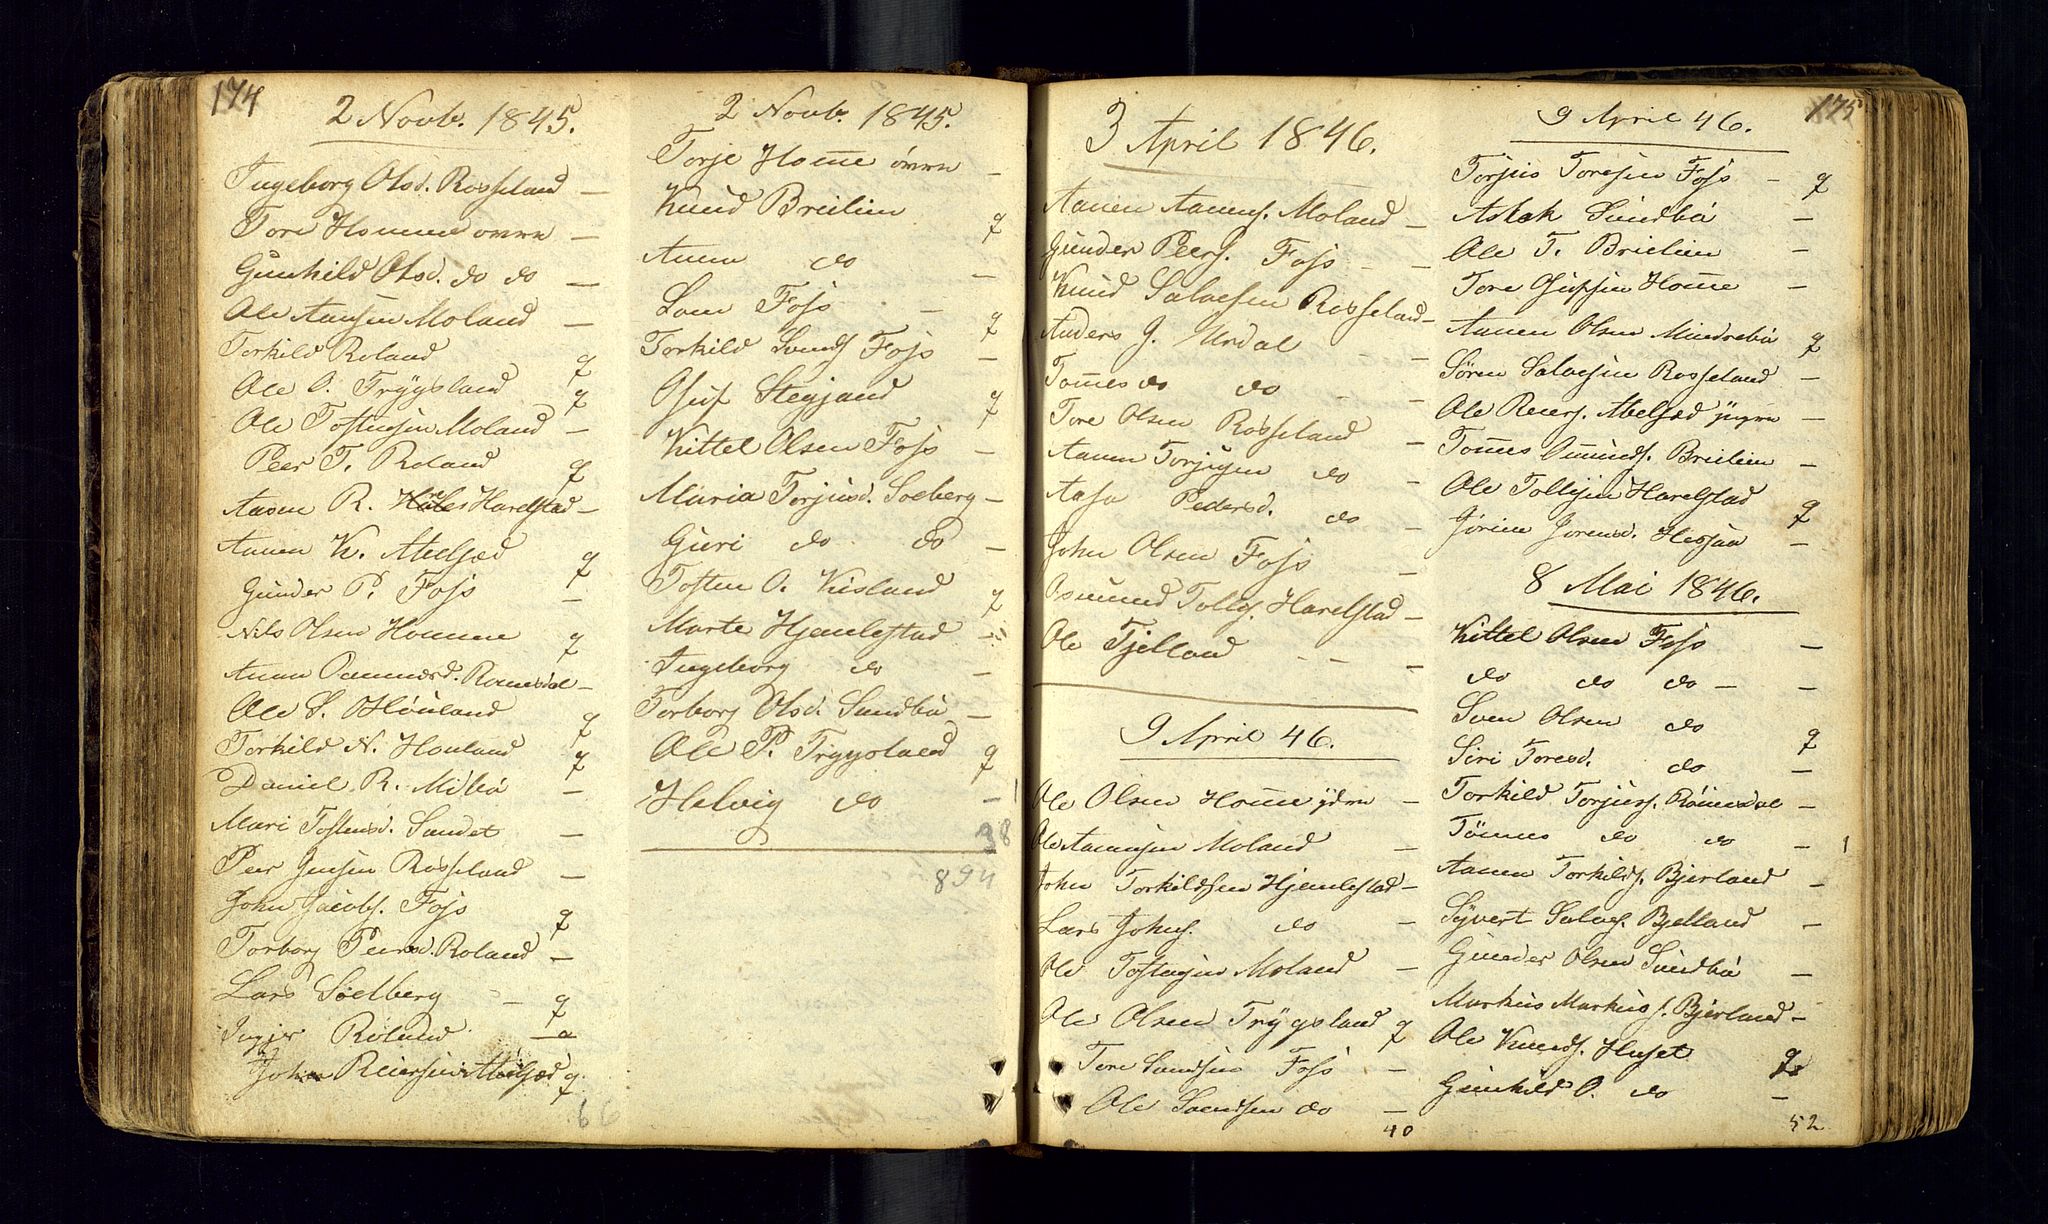 174
2 Novb. 1845.
Ingeborg Olsd. Rosseland —
Tore Homme øvre —
Gunhild Olsd. do do —
Ole Aansen Moland —
Torkild Roland q
Ole O. Trygsland q
Ole Tostensen Moland —
Peer T. Roland q
Aanen R. Harelstad —
Aanen K. Abelsæd q
Gunder P. Foss —
Nils Olsen Homme q
Anna Romesdal —
Ole S. Høuland q
Torkild N. Houland q
Daniel R. Midbø —
Mari Tostensd. Sandet —
Peer Jensen Rosseland —
John Jacobs. Foss q
Torborg Peersd. Roland —
Lars Soelberg — q
Inger Roland — a
John Reiersen Abelsæd q.
66
2 Novb. 1845.
Torje Homme øvre —
Knud Breilien q
Anna do —
Lars Foss — q
Torkild Svends Foss —
Osuf Stegjand q
Kittel Olsen Foss —
Maria Torjusd. Soeberg —
Guri do do —
Tosten O. Kisland q
Marte Hjemlestad —
Ingeborg do —
Torborg Olsd. Sundbø —
Ole P. Trygsland q
Helvig do —
38
894
3 April 1846.
Aanen Aanens. Moland —
Gunder Peers. Foss — —
Knud Salvesen Rosseland —
Anders G. Urdal — —
Tomes do do — —
Tore Olsen Rosseland —
Aanen Torjusen do —
Aasa Pedersd. do —
John Olsen Foss —
Osmund Tollefs. Harelstad —
Ole Tjelland — — —
9 April 46.
Ole Olsen Homme ydre —
Ole Aanensen Moland —
John Torkildsen Hjemlestad —
Lars Johns. do —
Ole Tostensen Moland —
Ole Olsen Trygsland q
Tore Svendsen Foss —
Ole Svendsen do —
40
175
9 April 46.
Torjus Toresen Foss — q
Aslak Sundbø —
Ole T. Brielien —
Tore Homme —
Aanen Olsen Mindrebø q
Søren Salvesen Rosseland —
Ole Reiers. Abelsæd yngre —
Tomes Omunds. Brielien —
Ole Tollefsen Harelstad q
Jörine Jorensd. Hessaa —
8 Mai 1846.
Kittel Olsen Foss —
do do do — —
Sven Olsen do q
Siri Toresd. do —
Torkild Torjus. Römesdal —
Tönnes do do —
Aanen Torkilds. Bjerland —
Syvert Salves. Bjelland —
Gunder Olsen Sundbø —
Markus Markus s. Bjerland —
Ole Knuds. Huset q
Gunhild O. do —
52